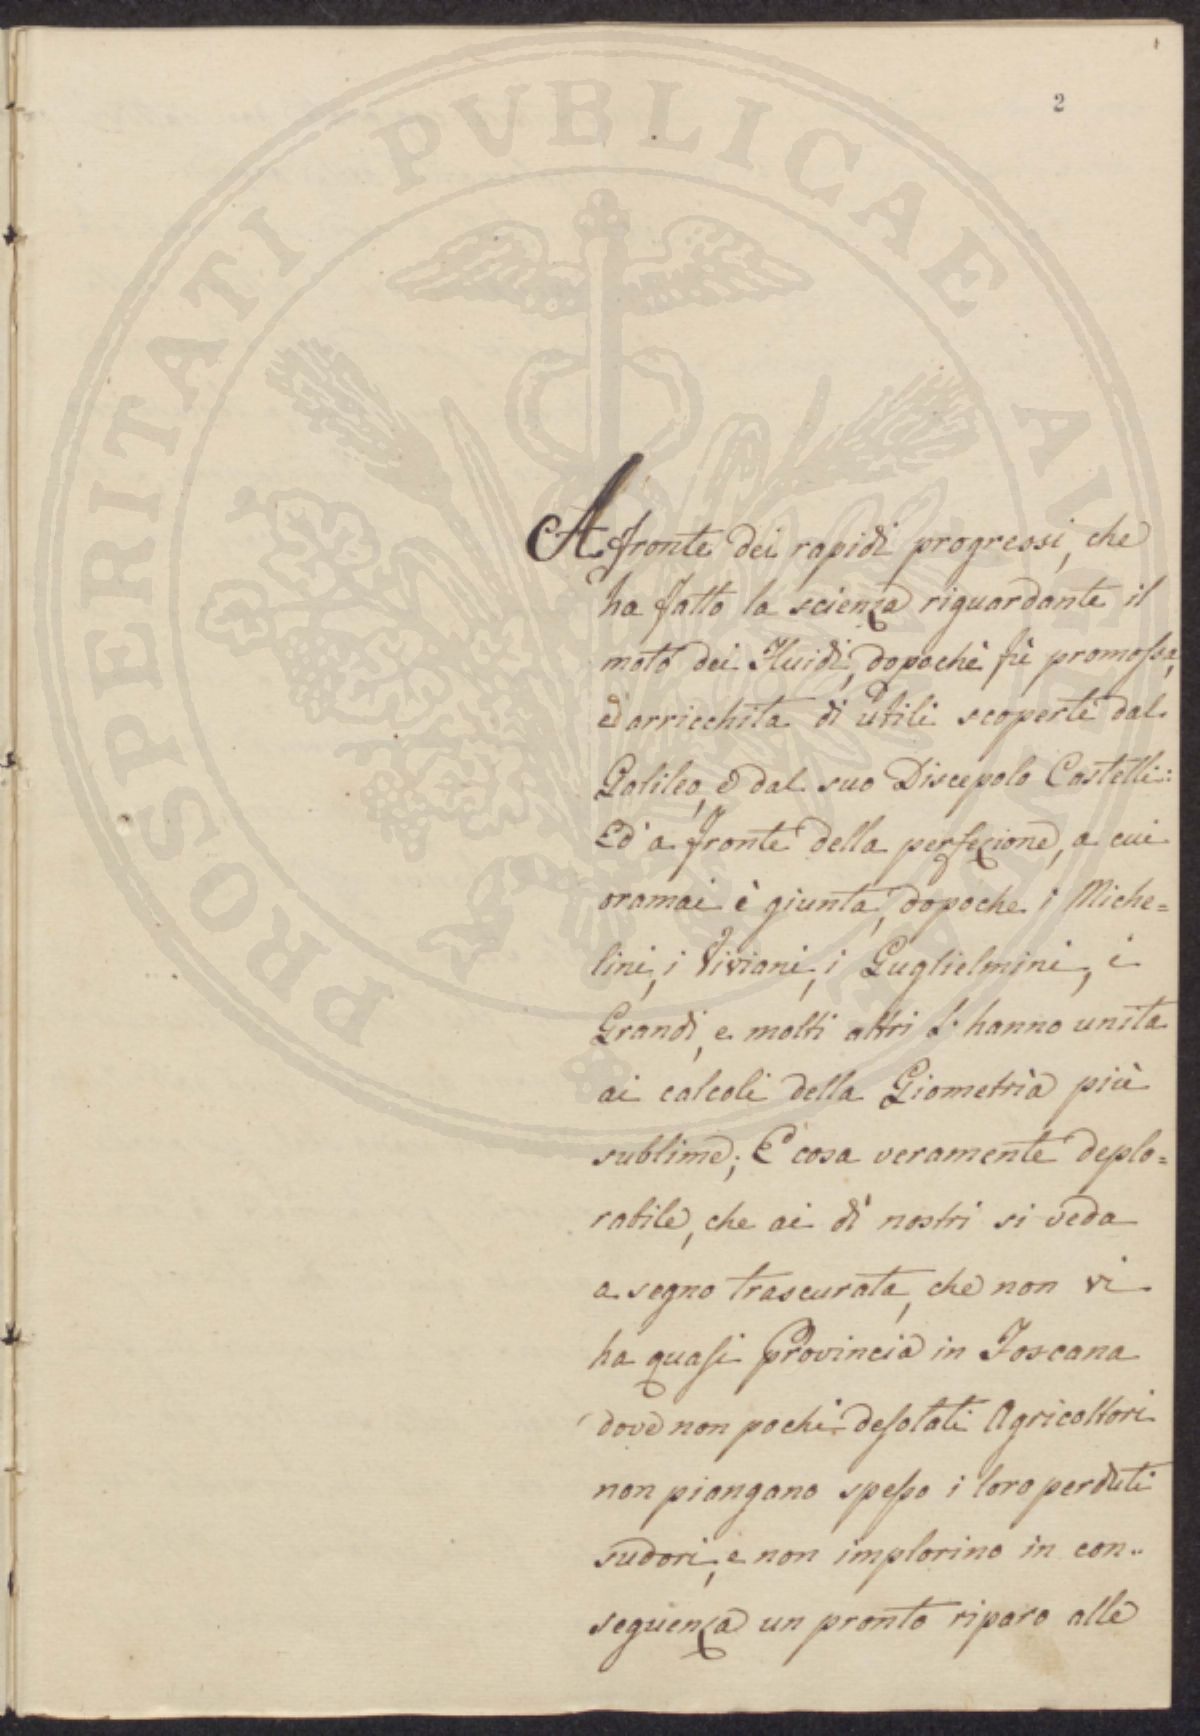 2
A fronte dei rapidi progressi, che
ha fatto la scienza riguardante il
moto dei Fluidi, dopochè fù promossa,
ed arricchita di utili scoperte dal
Galileo, e dal suo Discepolo Castelli:
Ed a fronte della perfezione, a cui
oramai è giunta, dopoche i Miche=
lini, i Viviani, i Guglielmini, i
Grandi, e molti altri l'hanno unita
ai calcoli della Giometrìa più
sublime; E' cosa veramente deplo=
rabile, che ai dì nostri si veda
a segno trascurata, che non vi
ha quasi Provincia in Toscana
dove non pochi desolati Agricoltori
non piangano spesso i loro perduti
sudori, e non implorino in con..
seguenza un pronto riparo alle
PROSPERITATI PVBLICAE AVGENDAE